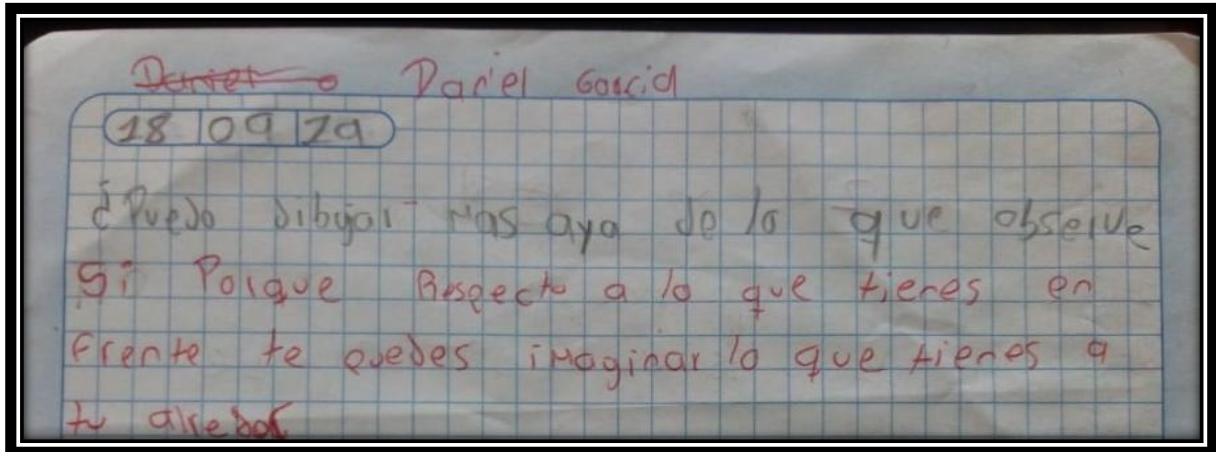 Daniel Dariel Garcia
18 09 19
¿Puedo dibujar mas aya de lo que observe
Si Porque Respecto a lo que tienes en
frente te puedes imaginar lo que tienes a
tu alrebor